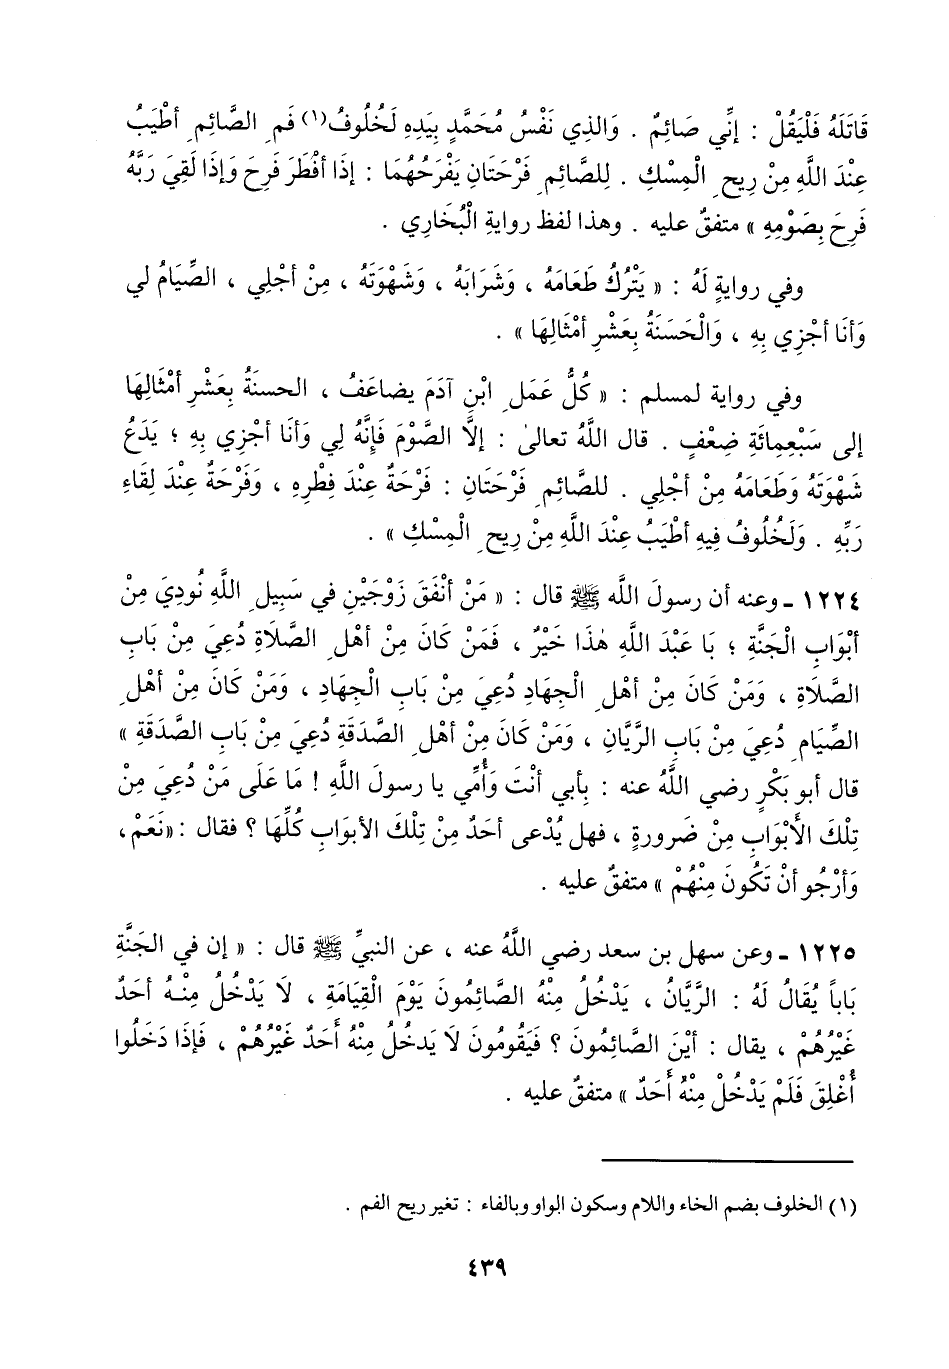 قَاتَلَهُ فَلْيَقُلْ : إنِّي صَائِمٌ . وَالذِي نَفْسُ مُحَمَّدٍ بِيَدِهِ لَخُلُوفُ(١) فَمِ الصَّائِمِ أَطْيَبُ
عِنْدَ اللَّهِ مِنْ رِيحِ الْمِسْكِ . لِلصَّائِمِ فَرْحَتَانِ يَفْرَحُهُمَا : إذَا أفْطَرَ فَرِحَ وَإذَا لَقِيَ رَبَّهُ
فَرِحَ بِصَوْمِهِ » متفقٌ عليه . وهذا لفظ روايةِ الْبُخَارِي .
وفي روايةٍ لَهُ : « يَتْرُكُ طَعَامَهُ ، وَشَرَابَهُ ، وَشَهْوَتَهُ ، مِنْ أجْلِي ، الصِّيَامُ لي
وَأنَا أجْزِي بِهِ ، وَالْحَسَنَةُ بِعَشْرِ أمْثَالِهَا » .
وفي رواية لمسلم : « كُلُّ عَمَلِ ابْنِ آدَمَ يضاعَفُ ، الحسنَةُ بِعَشْرِ أمْثَالِهَا
إلى سَبْعِمِائَةِ ضِعْفٍ . قال اللَّهُ تعالىٰ : إلاَّ الصَّوْمَ فَإنَّهُ لِي وَأنَا أجْزِي بِهِ ؛ يَدَعُ
شَهْوَتَهُ وَطَعَامَهُ مِنْ أجْلِي . للصَّائِمِ فَرْحَتَانِ : فَرْحَةٌ عِنْدَ فِطْرِهِ ، وَفَرْحَةٌ عِنْدَ لِقَاءِ
رَبِّهِ . وَلَخُلُوفُ فِيهِ أطْيَبُ عِنْدَ اللَّهِ مِنْ رِيحِ الْمِسْكِ » .
١٢٢٤ ـ وعنه أن رسولَ اللَّه ﷺ قال : « مَنْ أنْفَقَ زَوْجَيْنِ في سَبِيلِ اللَّهِ نُودِيَ مِنْ
أبْوَابِ الْجَنَّةِ ؛ يَا عَبْدَ اللَّهِ هٰذَا خَيْرٌ ، فَمَنْ كَانَ مِنْ أهْلِ الصَّلَاةِ دُعِيَ مِنْ بَابِ
الصَّلَاةِ ، وَمَنْ كَانَ مِنْ أهْلِ الْجِهَادِ دُعِيَ مِنْ بَابِ الْجِهَادِ ، وَمَنْ كَانَ مِنْ أهْلِ
الصِّيَامِ دُعِيَ مِنْ بَابِ الرَّيَّانِ ، وَمَنْ كَانَ مِنْ أهْلِ الصَّدَقَةِ دُعِيَ مِنْ بَابِ الصَّدَقَةِ »
قال أبو بَكْرٍ رضي اللَّهُ عنه : بِأبي أنْتَ وَأُمِّي يا رسولَ اللَّهِ ! مَا عَلَى مَنْ دُعِيَ مِنْ
تِلْكَ الْأَبْوَابِ مِنْ ضَرورةٍ ، فهل يُدْعى أحَدٌ مِنْ تِلْكَ الأبوَابِ كُلِّهَا ؟ فقال : «نَعَمْ ،
وَأرْجُو أنْ تَكُونَ مِنْهُمْ » متفقٌ عليه .
١٢٢٥ ـ وعن سهل بن سعد رضي اللَّهُ عنه ، عن النبيِّ ﷺ قال : « إن في الجَنَّةِ
بَاباً يُقَالُ لَهُ : الرَّيَّانُ ، يَدْخُلُ مِنْهُ الصَّائِمُونَ يَوْمَ الْقِيَامَةِ ، لَا يَدْخُلُ مِنْهُ أحَدٌ
غَيْرُهُمْ ، يقال : أيْنَ الصَّائِمُونَ ؟ فَيَقُومُونَ لَا يَدخُلُ مِنْهُ أَحَدٌ غَيْرُهُمْ ، فَإذَا دَخَلُوا
أُغْلِقَ فَلَمْ يَدْخُلْ مِنْهُ أَحَدٌ » متفقٌ عليه .
(١) الخلوف بضم الخاء واللام وسكون الواو وبالفاء : تغير ريح الفم .
٤٣٩